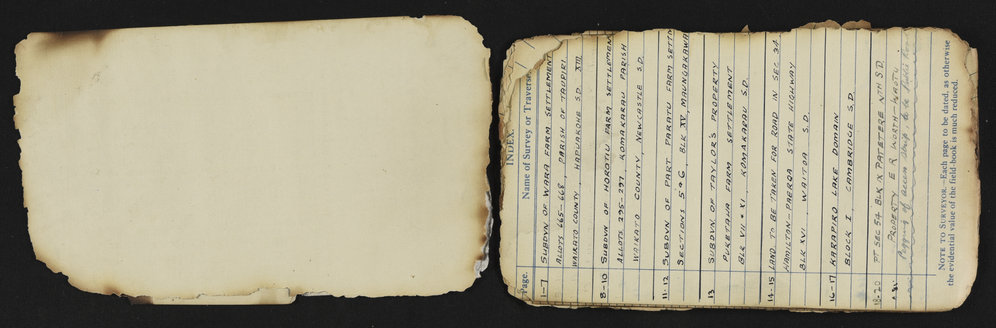 INDEX.
Page. Name of Survey or Traverse.
1-7 SUBDVN OF WARA FARM SETTLEMENT
ALLOTS 665-668, PARISH OF TAUPIRI
WAIKATO COUNTY, HAPUAKOHE S.D. XIII
8-10 SUBDVN OF HOROTIU FARM SETTLEMEN
ALLOTS 295-297 KOMAKARAU PARISH
WAIKATO COUNTY, NEWCASTLE S.D.
11-12 SUBDVN OF PART PARATU FARM SETTIN
SECTIONS 5 & 6, BLK XV, MAUNGAKAWA
13 SUBDVN OF TAYLOR'S PROPERTY
PUKETAHA FARM SETTLEMENT
BLK VII & XI, KOMAKARAU S.D.
14-15 LAND TO BE TAKEN FOR ROAD IN SEC 34
HAMILTON-PAEROA STATE HIGHWAY
BLK XVI, WAITOA S.D.
16-17 KARAPIRO LAKE DOMAIN
BLOCK I, CAMBRIDGE S.D.
18-20 PT SEC 54 BLK X PATETERE NTH S.D.
PROPERTY E R WORTH
Pegging of access strip to be
NOTE TO SURVEYOR.—Each page to be dated, as otherwise
the evidential value of the field-book is much reduced.